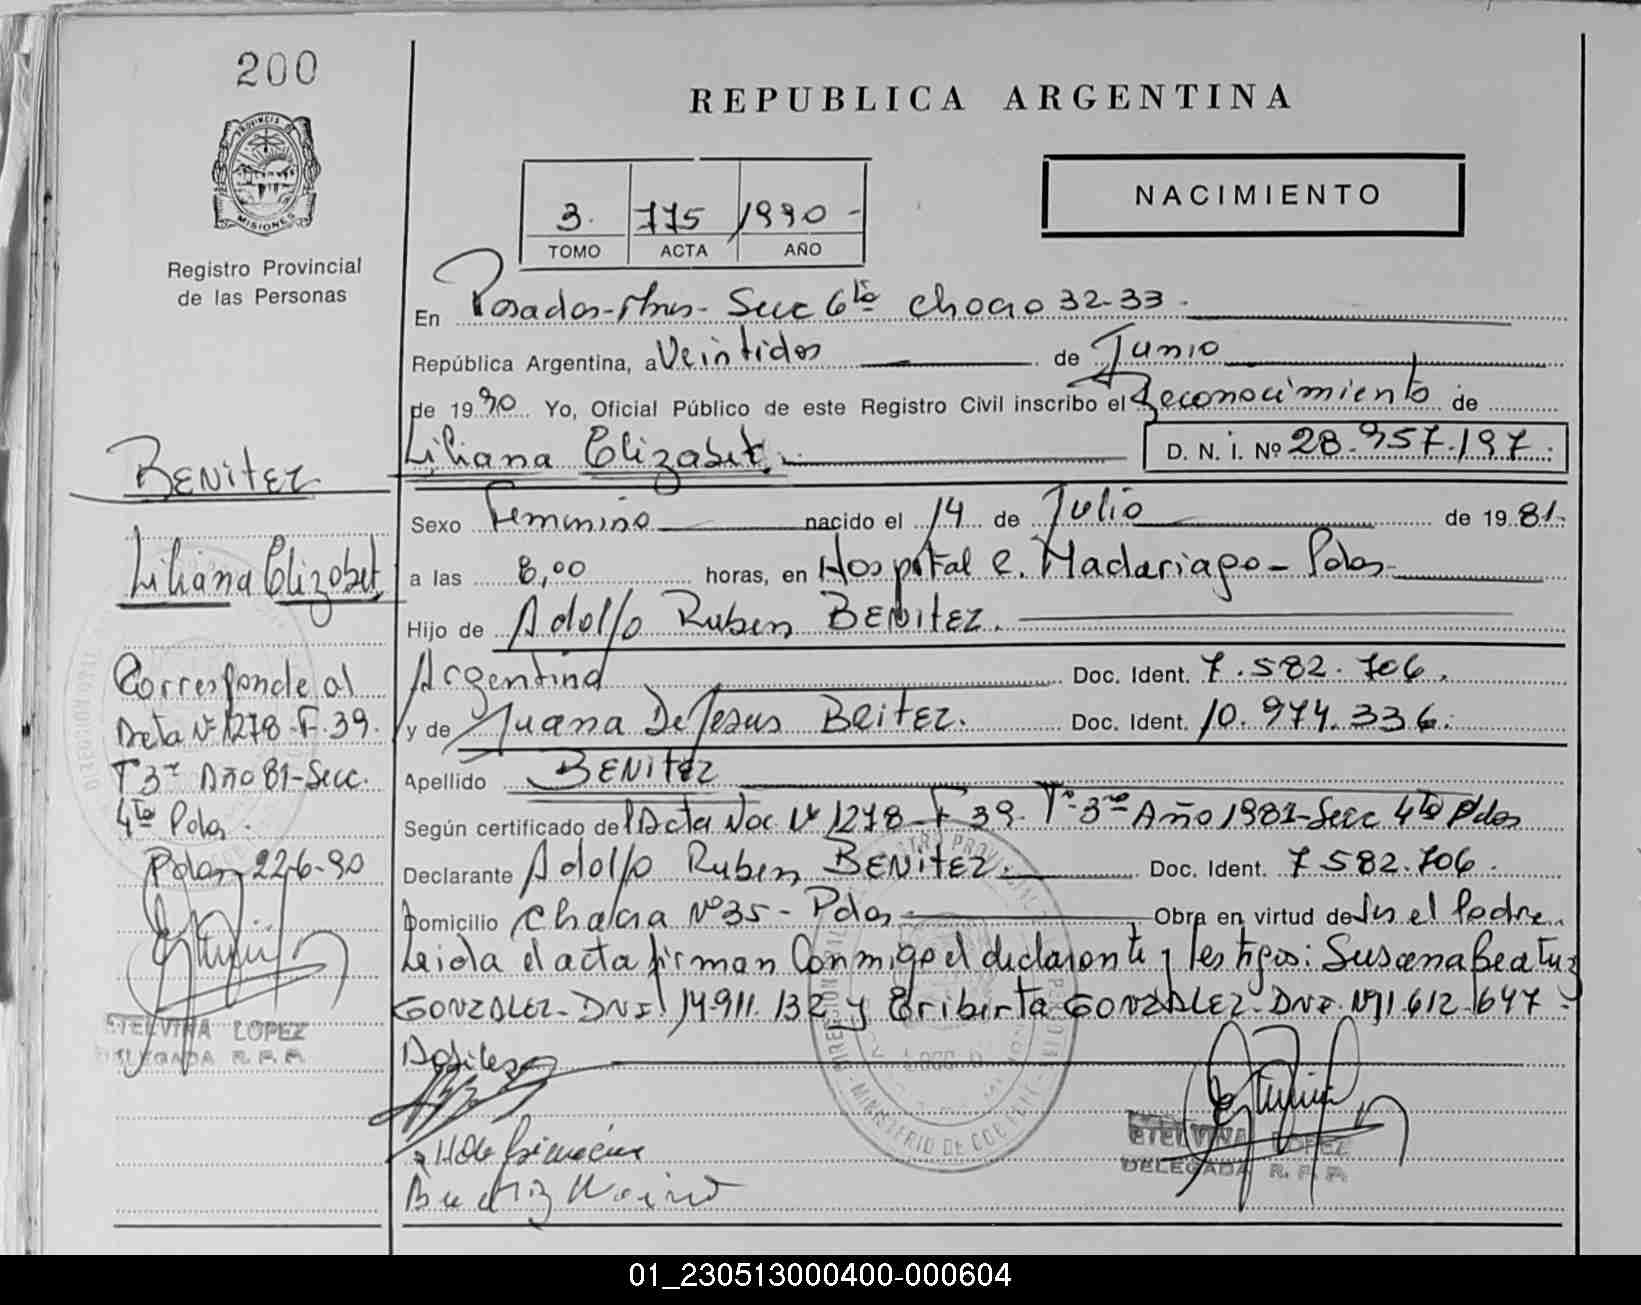 200
PROVINCIA DE
MISIONES
Registro Provincial
de las Personas
BENITEZ
Liliana Elizabet
Corresponde al
Acta Nº 1278-F.39.
Tº 3º Año 81-Secc.
4ta Pdas.
Pdas, 22-6-90
ETELVINA LOPEZ
DELEGADA R. P. P.
REPUBLICA ARGENTINA
3. 775 1990-
TOMO ACTA AÑO
NACIMIENTO
En Posadas-Mnes- Secc 6ta Chacra 32-33.
República Argentina, a Veintidos de Junio
de 19 90 Yo, Oficial Público de este Registro Civil inscribo el Reconocimiento de
Liliana Elizabet. D. N. I. Nº 28.957.197.
Sexo Femenino nacido el 14 de Julio de 19 81.
a las 8,00 horas, en Hospital R. Madariaga - Pdas-
Hijo de Adolfo Ruben BENITEZ.
Argentina Doc. Ident. 7.582.706.
y de Juana De Jesus BRITEZ. Doc. Ident. 10.974.336.
Apellido BENITEZ
Según certificado del Acta Nac. Nº 1278-F 39. Tº-3º Año 1981-Secc 4ta Pdas
Declarante Adolfo Ruben BENITEZ. Doc. Ident. 7 582.706.
Domicilio Chacra Nº 35 - Pdas- Obra en virtud de Ser el Padre.
Leida el acta firman Conmigo el declarante y testigos: Susana Beatriz
GONZALEZ- DNI 14.911.132 y Eriberta GONZALEZ- DNI. Nº 11.612.647-
ETELVINA LOPEZ
DELEGADA R. P. P.
MINISTERIO DE GOBIERNO
01_230513000400-000604